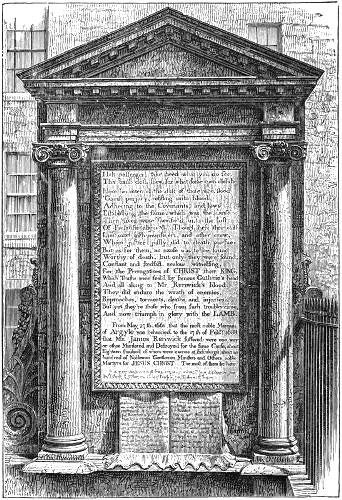 Halt passenger, take heed what you do see,
This tomb doth shew, for what some men did die.
Here lies interr'd the dust of those who stood
'Gainst perjury, resisting unto blood
Adhering to the Covenants, and laws
Establishing the same: which was the cause
Their lives were sacrific'd unto the lust
Of Prelatists abjur'd. Though here their dust
Lies mixt with murderers, and other crew,
Whom justice justly did to death pursue:
But as for them, no cause was to be found
Worthy of death, but only they were found
Constant and stedfast, zealous witnessing,
For the Prerogatives of CHRIST their KING.
Which Truths were seal'd by famous Guthrie's head
And all along to Mr Renwick's blood
They did endure the wrath of enemies,
Reproaches, torments, deaths, and injuries.
But yet they're those who from such troubles came,
And now triumph in glory with the LAMB.
From May 27th. 1661 that the most noble Marquis
of Argyle was beheaded, to the 17th of Feb.
that Mr. James Renwick suffered: were one way
or other Murdered and Destroyed for the same Cause, about
Eighteen thousand, of whom were execute at Edinburgh about an
hundred of Noblemen Gentlemen Ministers and Others noble
Martyrs for JESUS CHRIST. The most of them lie here.